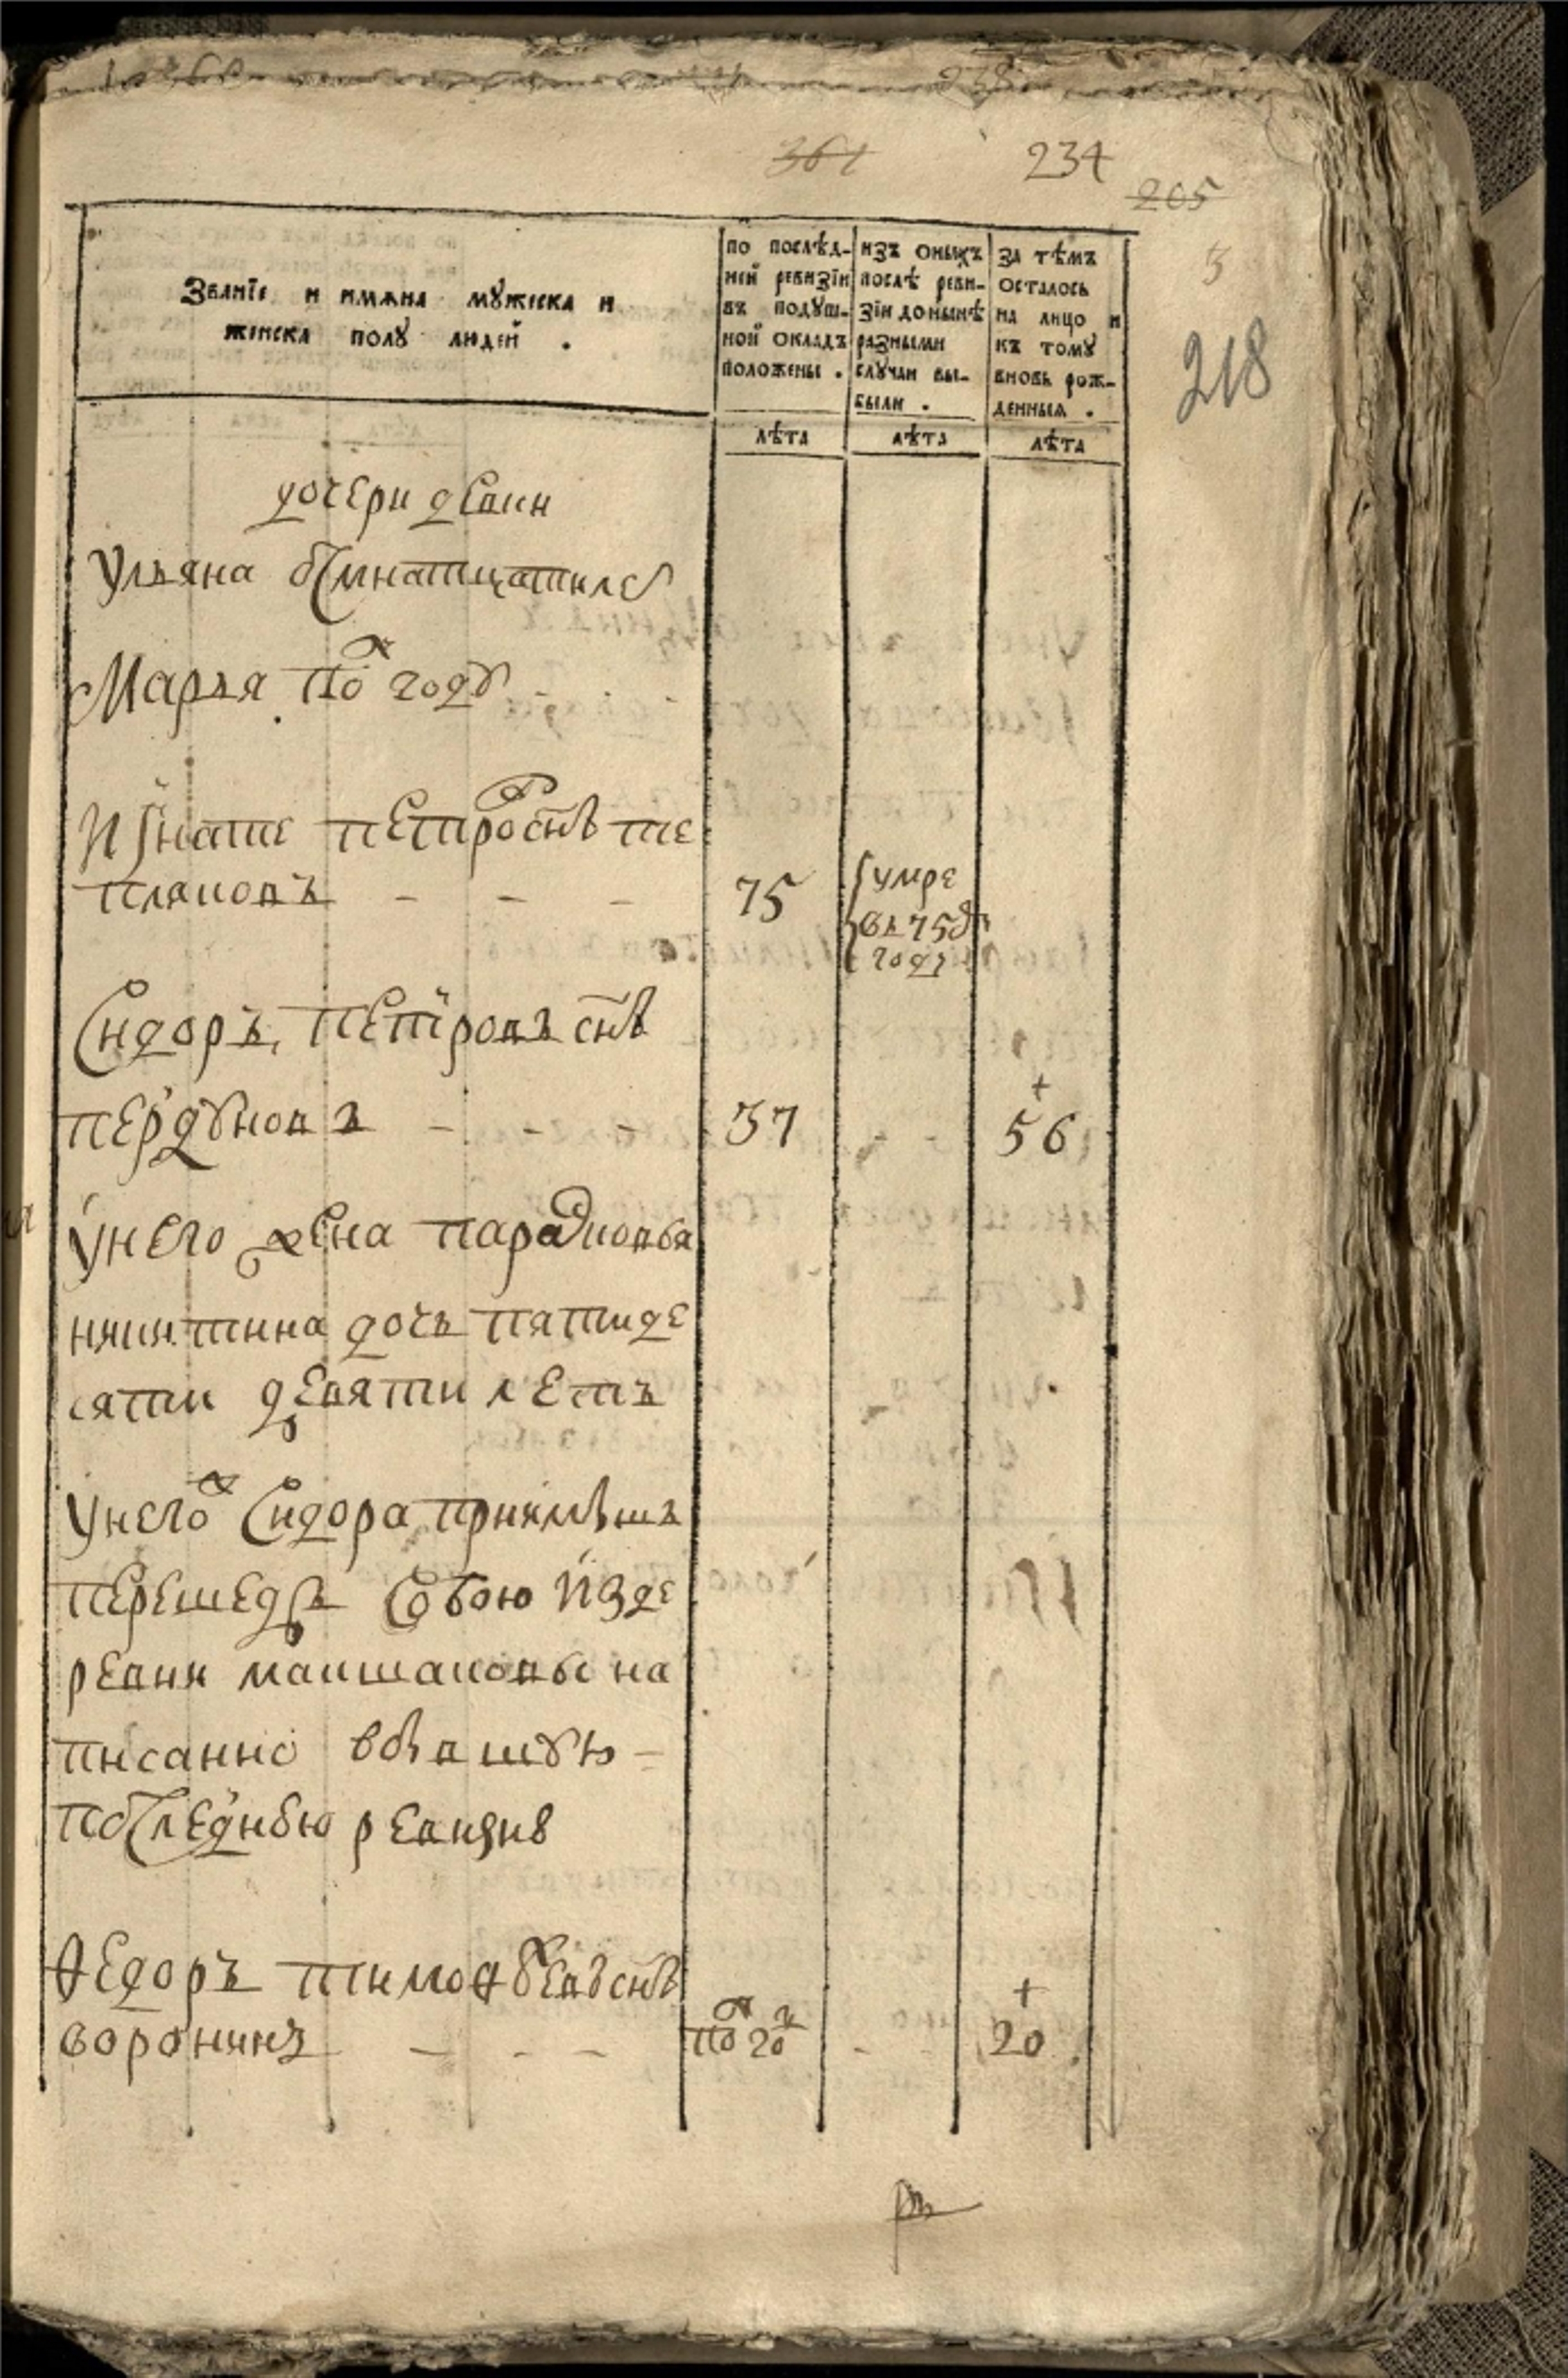 361 234
205
5
218
Званїе и имѧна мꙋжеска и
женска полꙋ людей .
по послѣд-
ней ревизїи
въ подꙋш-
ной окладъ
положены .
изъ оныхъ
послѣ реви-
зїи до нынѣ
разными
слꙋчаи вы-
были .
за тѣмъ
осталось
на лицо и
къ томꙋ
вновь рож-
денныя .
лѣта лѣта лѣта
дочери девки
Ульяна осмнатцатилеѣ
Марья полꙋ годꙋ
Игнате петров снъ те
пляковъ - - - 75 умре
въ 758м
году
Сидоръ петровъ снъ
пердꙋновъ - - - 37 - - 56
у него жена парасковья
никитина дочь пятиде
сяти девяти летъ
у него ж Сидора приямышъ
перешедъ собою изде
ревни макшаковы на
писанно в бывшꙋю -
последнюю ревизию
Ѳедоръ тимоѳеевъ снъ
воронинъ - - - полг 20 - - 20